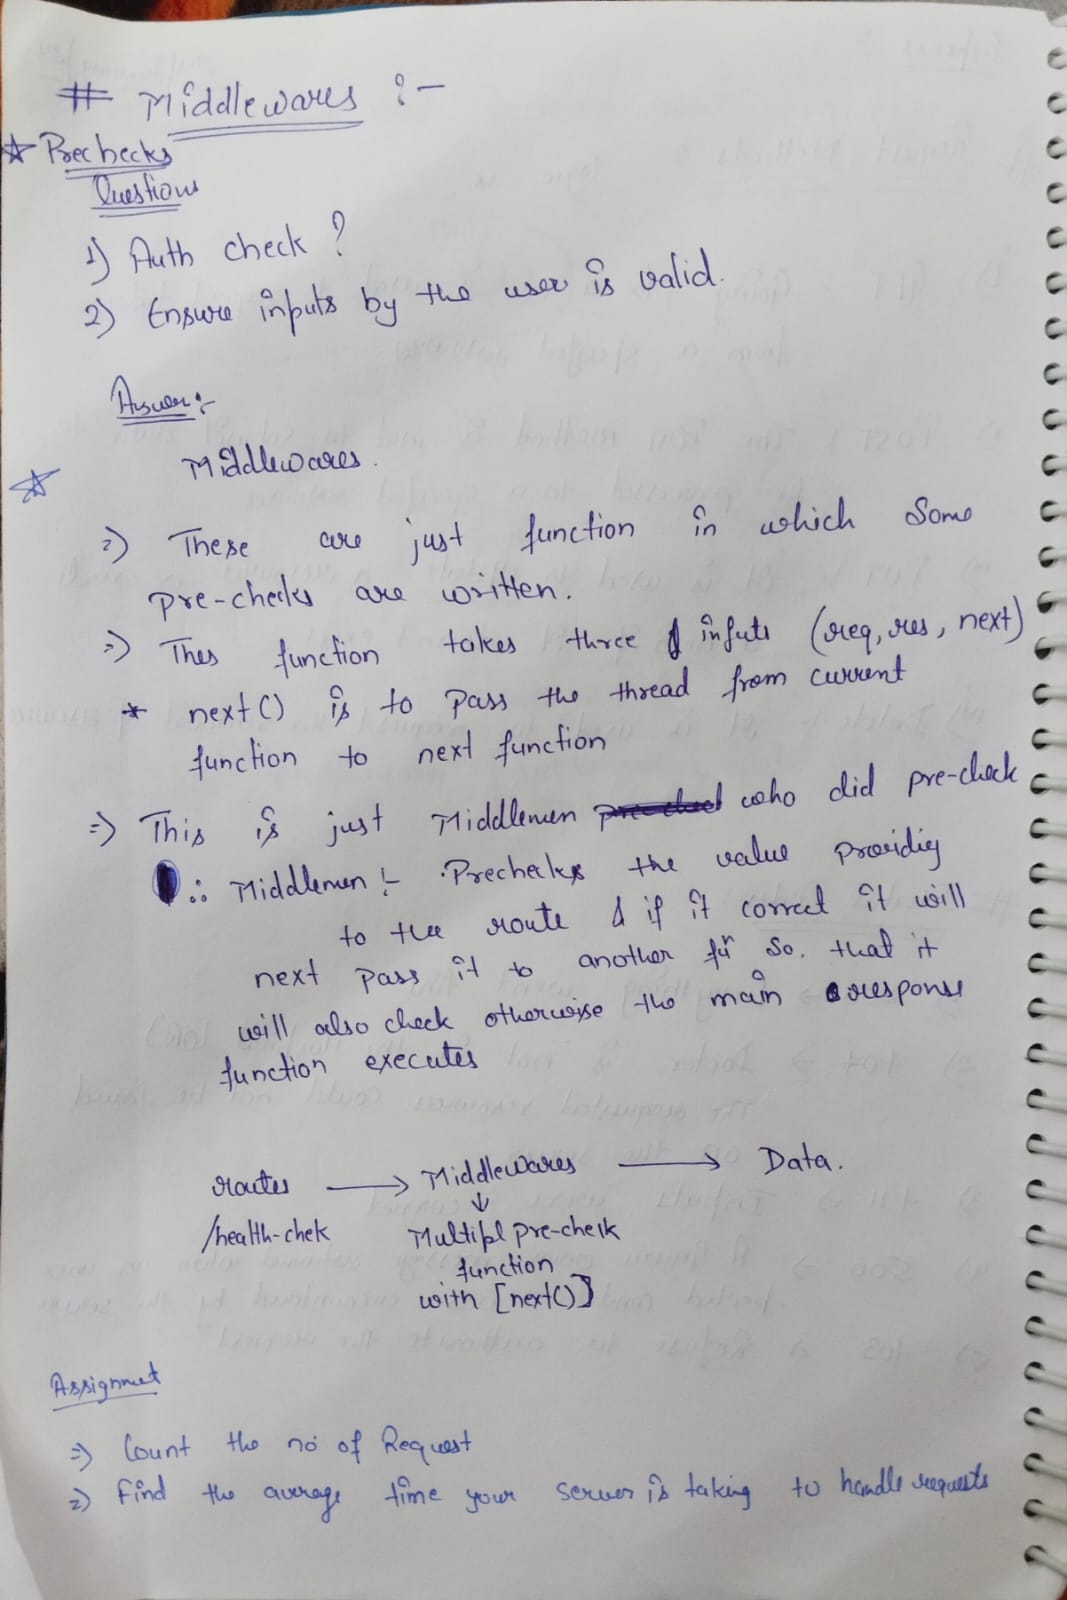 # Middlewares :-
Prechecks
Questions
1) Auth check ?
2) Ensure inputs by the user is valid.
Answer:-
Middlewares.
=) These are just function in which some
pre-checks are written.
=) Thes function takes three inputs (req, res, next)
* next() is to pass the thread from current
function to next function
=) This is just Middlemen who did pre-check
∴ Middlemen :- Prechecks the value providig
to the route & if it correct it will
next pass it to another fn so, that it
will also check otherwise the main response
function executes
routes → Middlewares → Data.
↓
/health-chek Multipl pre-check
function
with [next()]
Assignmet
=) Count the no of Request
=) Find the average time your server is taking to handle requests